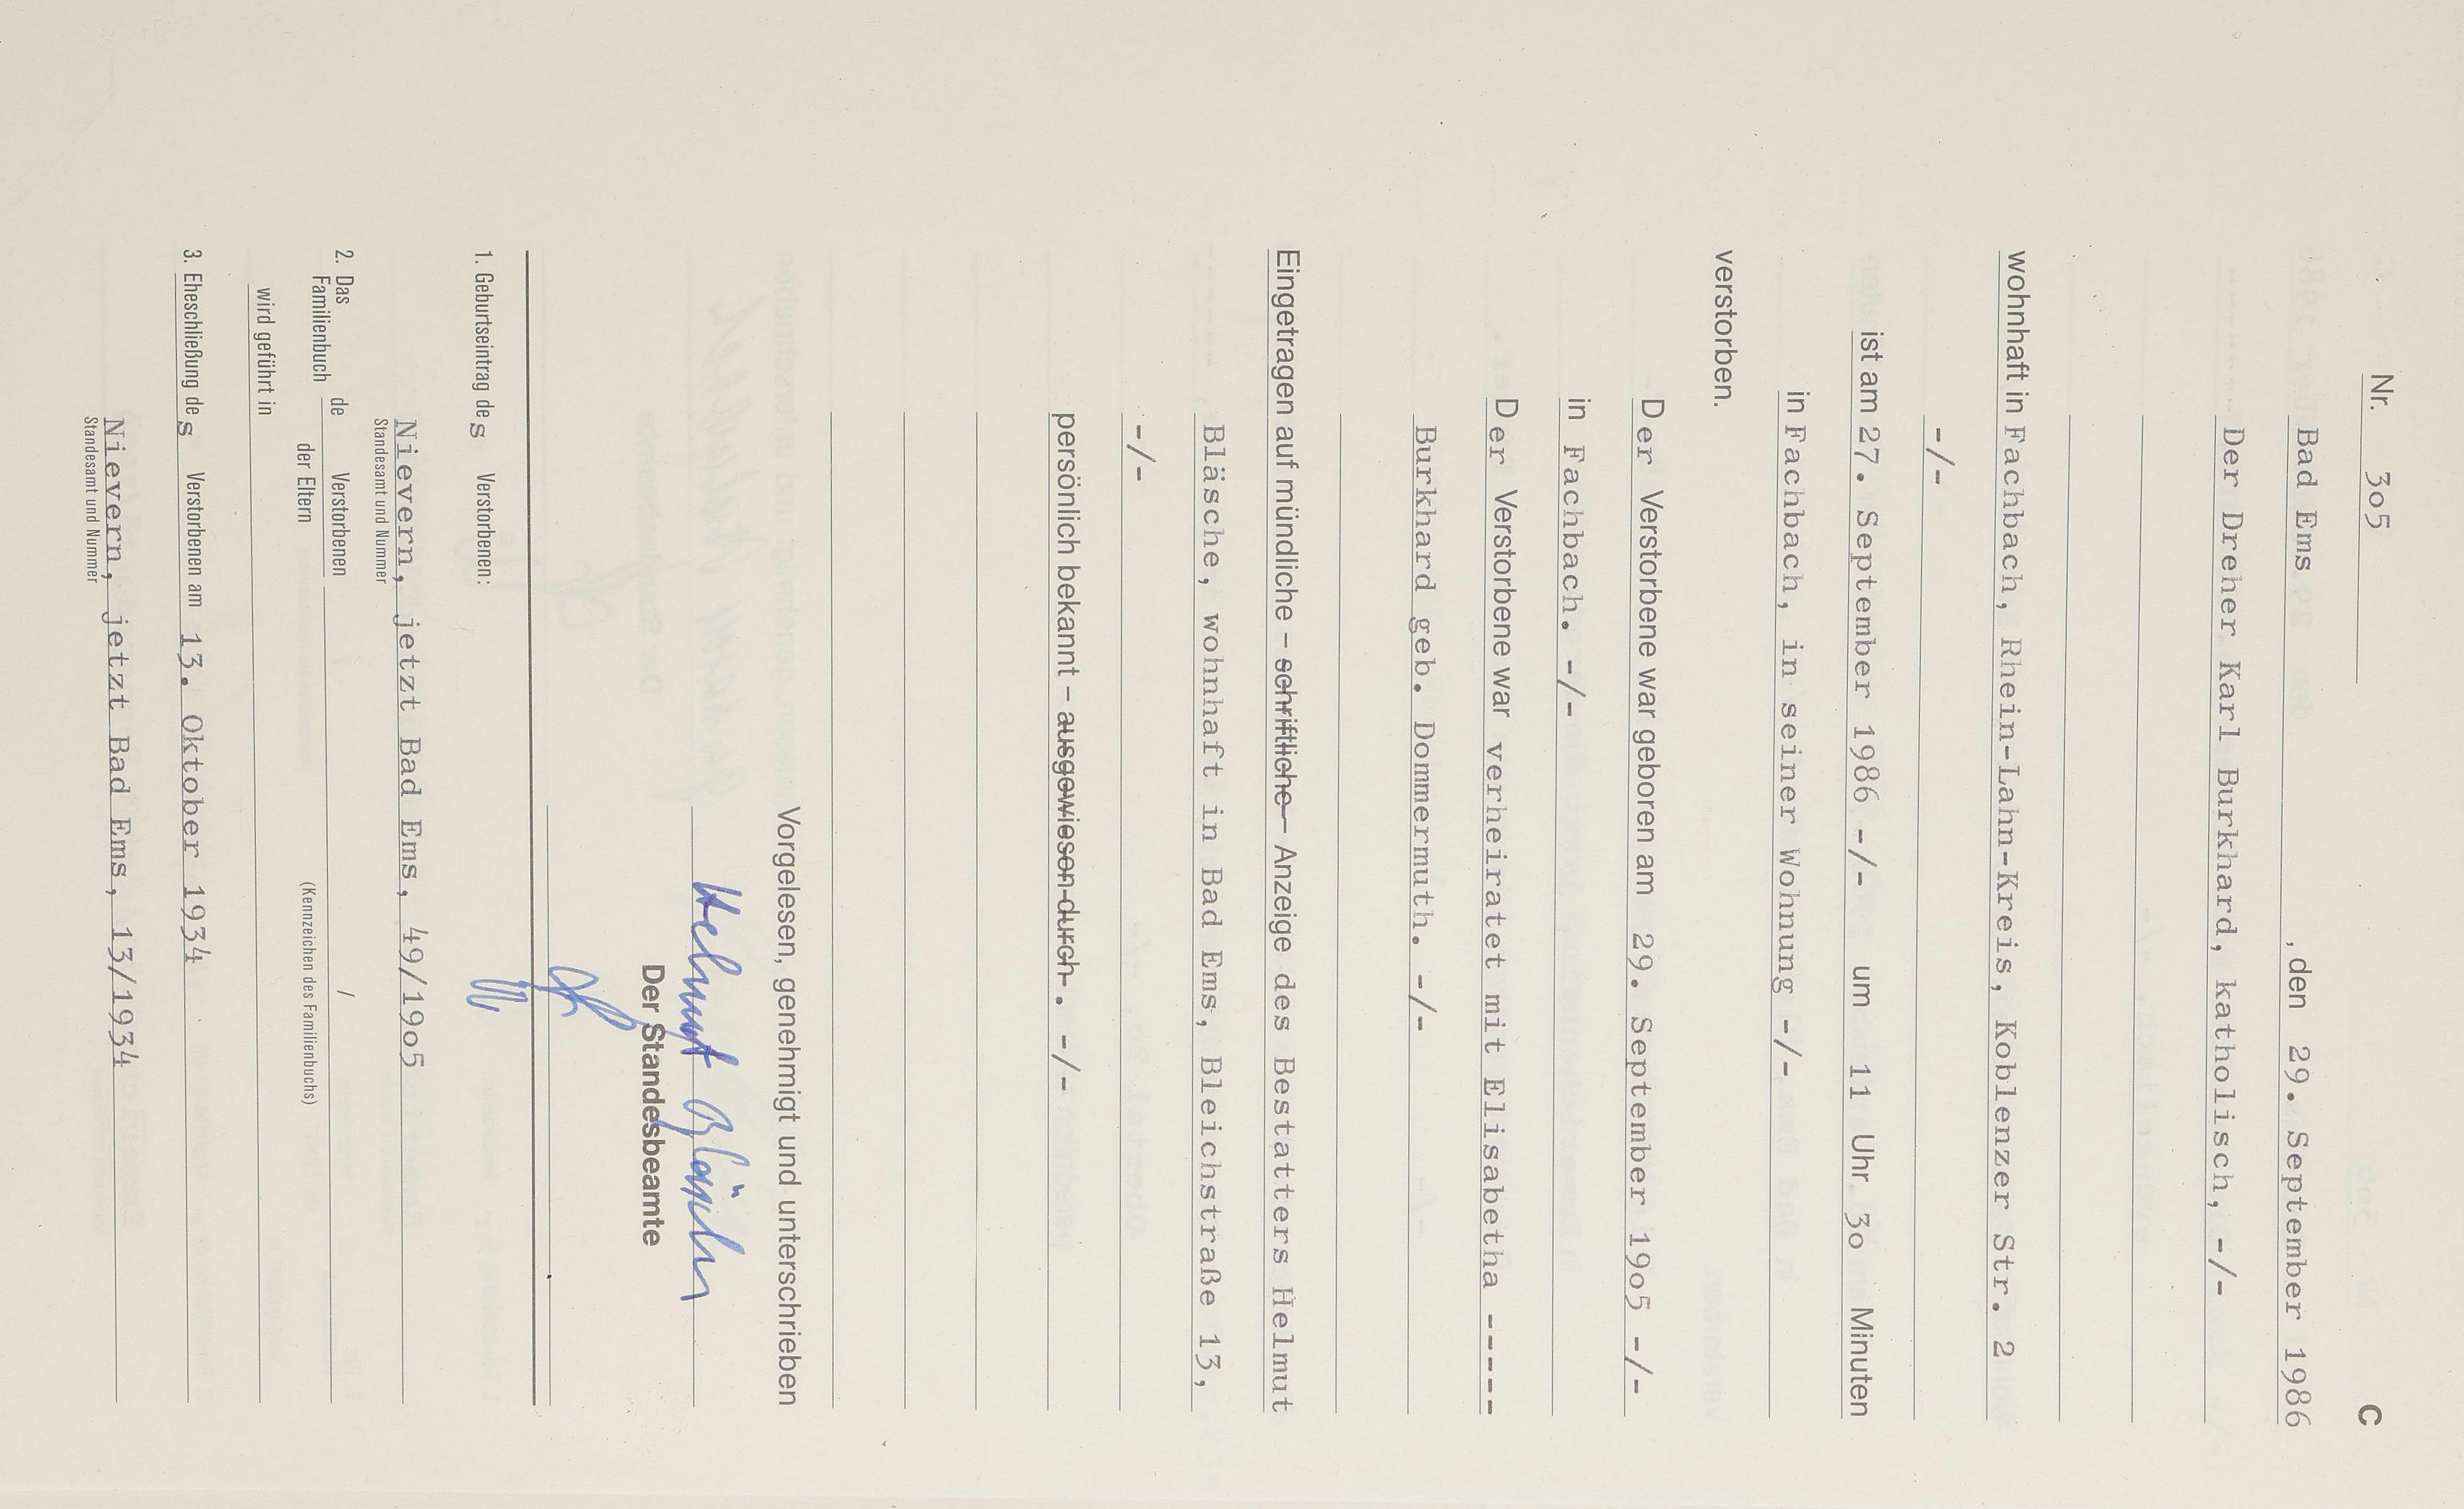 Nr. 3o5
C
Bad Ems, den 29. September 1986
Der Dreher Karl Burkhard, katholisch, -/-
wohnhaft in Fachbach, Rhein-Lahn-Kreis, Koblenzer Str. 2
-/-
ist am 27. September 1986 -/- um 11 Uhr 3o Minuten
in Fachbach, in seiner Wohnung -/-
verstorben.
Der Verstorbene war geboren am 29. September 19o5 -/-
in Fachbach. -/-
Der Verstorbene war verheiratet mit Elisabetha -----
Burkhard geb. Dommermuth. -/-
Eingetragen auf mündliche – schriftliche – Anzeige des Bestatters Helmut
Bläsche, wohnhaft in Bad Ems, Bleichstraße 13,
-/-
persönlich bekannt – ausgewiesen durch . -/-
Vorgelesen, genehmigt und unterschrieben
Helmut Bläsche
Der Standesbeamte
1. Geburtseintrag des Verstorbenen:
Nievern, jetzt Bad Ems, 49/19o5
Standesamt und Nummer
2. Das Familienbuch de Verstorbenen /
der Eltern (Kennzeichen des Familienbuchs)
wird geführt in
3. Eheschließung des Verstorbenen am 13. Oktober 1934
Nievern, jetzt Bad Ems, 13/1934
Standesamt und Nummer